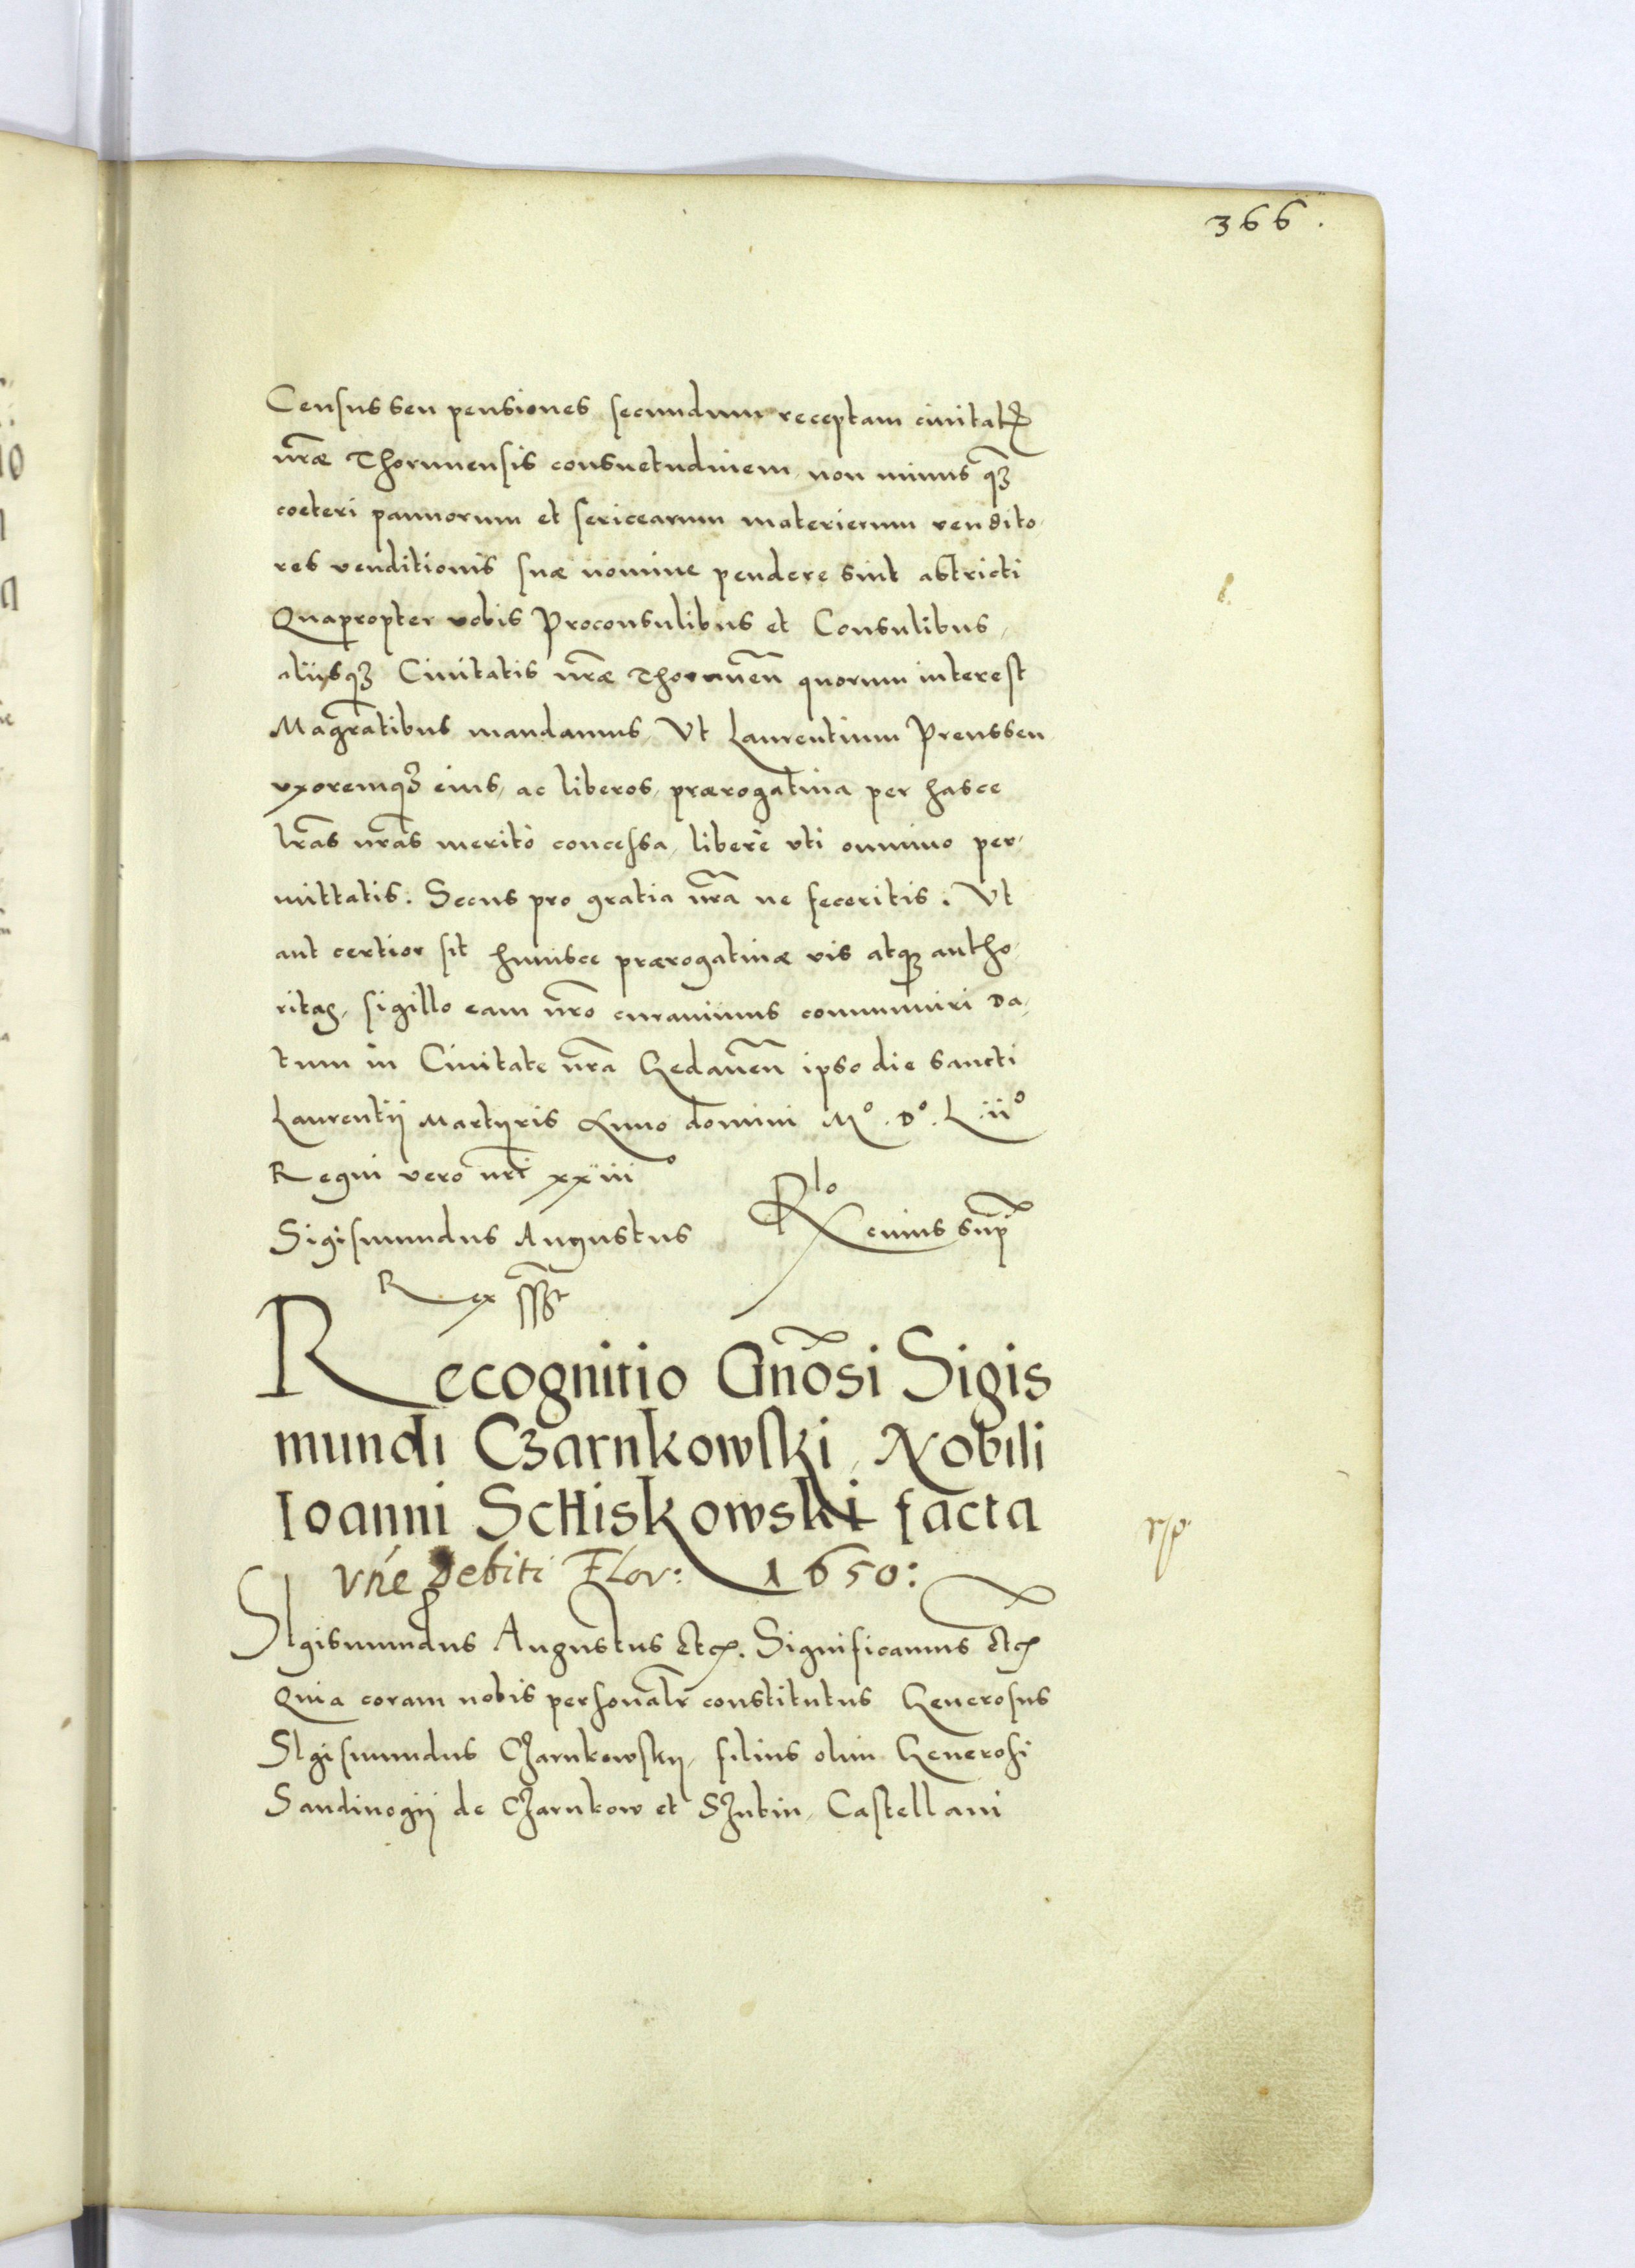 366.
Census seu pensiones secundum receptam ciuitatis
nr̃æ Thorunensis consuetudinem, non minus qȝ
coeteri pannorum et sericearum materierum vendito,
res venditionis suæ nomine pendere sint abstricti
Quapropter vobis Proconsulibus et Consulibus,
aliisqȝ Ciuitatis nr̃æ Thorunen̄ quorum interest
Magr̃atibus mandamus, Vt Laurentium Preussen
vxoremqȝ eius, ac liberos, prærogatiua per hasce
lr̃as nr̃as meritò concessa, liberè vti omnino per,
mittatis. Secus pro gratia nr̃a ne feceritis. Vt
aut certior sit huiusce prærogatiuæ vis atqȝ autho,
ritas, sigillo eam nr̃o curauimus communiri Da,
tum in Ciuitate nr̃a Gedanen̄ ipso die Sancti
Laurentij Martyris Anno domini Mº. Dº. Liiº
Regni vero nr̃i xxiiiº
Sigismundus Augustus
Rex ss̃t
Rlo
cuius sup̃
Recognitio Gn̄osi Sigis
mundi Czarnkowski, Nobili
Ioanni Schiskowski facta
rone Debiti Flor: 1650:
SIgismundus Augustus etc. Significamus etc
Quia coram nobis personalr̃ constitutus Generosus
SIgismundus Czarnkowsky, filius olim Generosi
Sandiuogij de Czarnkow et Szubin, Castellani